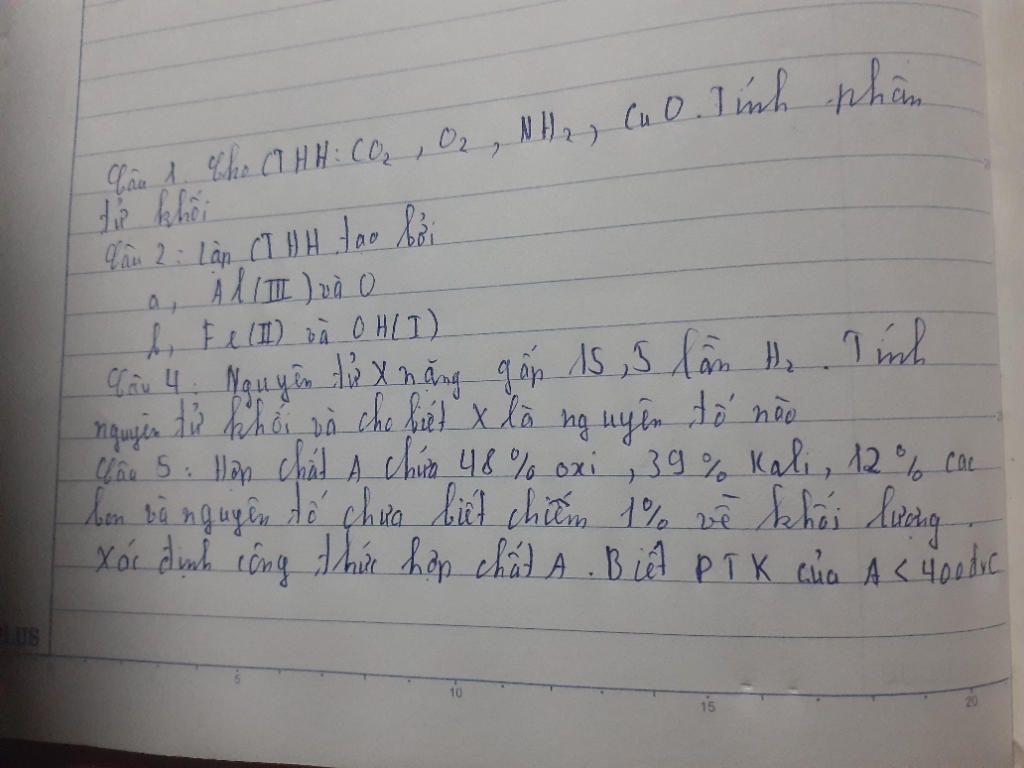 Câu 1. Cho CTHH: CO₂, O₂, NH₂, CuO. Tính phân
tử khối
Câu 2: Lập CTHH tạo bởi
a, Al(III) và O
b, Fe(II) và OH(I)
Câu 4: Nguyên tử X nặng gấp 15,5 lần H₂. Tính
nguyên tử khối và cho biết X là nguyên tố nào
Câu 5: Hợp chất A chứa 48% oxi, 39% Kali, 12% cac
bon và nguyên tố chưa biết chiếm 1% về khối lượng.
Xác định công thức hợp chất A. Biết PTK của A < 400đvC
LUS
5
10
15
20